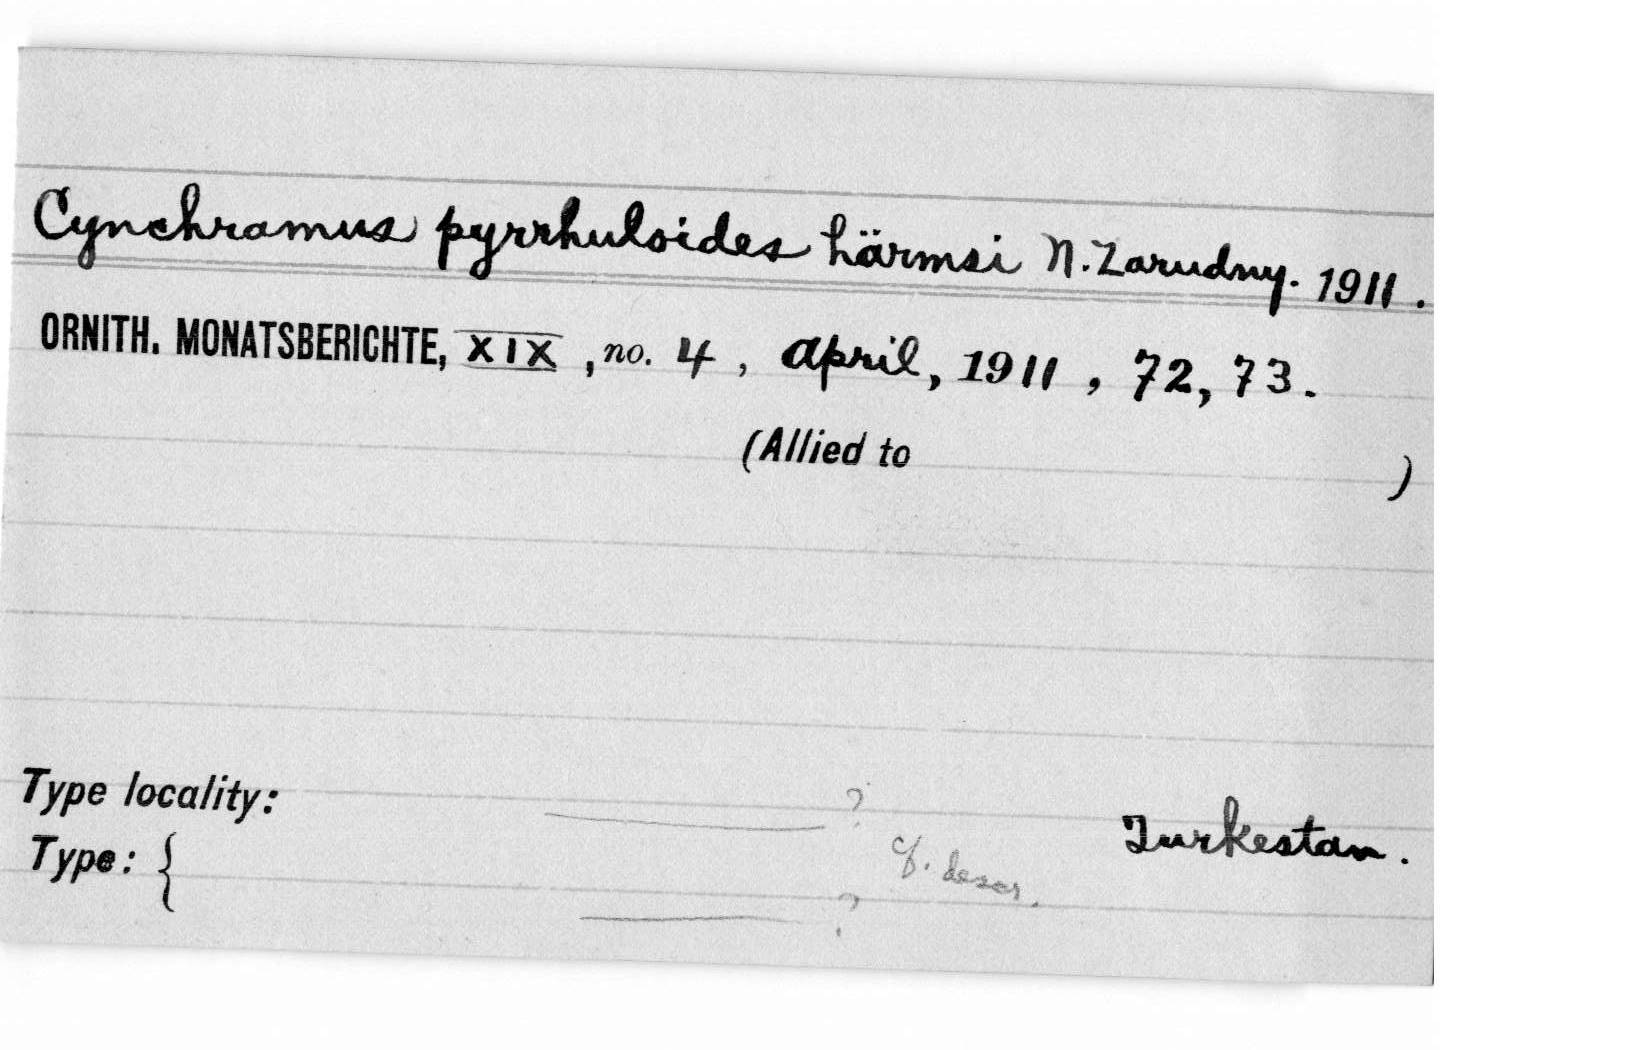 Cynchramus pyrrhuloides härmsi N. Zarudny. 1911.
ORNITH. MONATSBERICHTE, XIX, no. 4, April, 1911, 72, 73.
(Allied to )
Type locality: ? Turkestan.
cf. descr.
Type: { ?